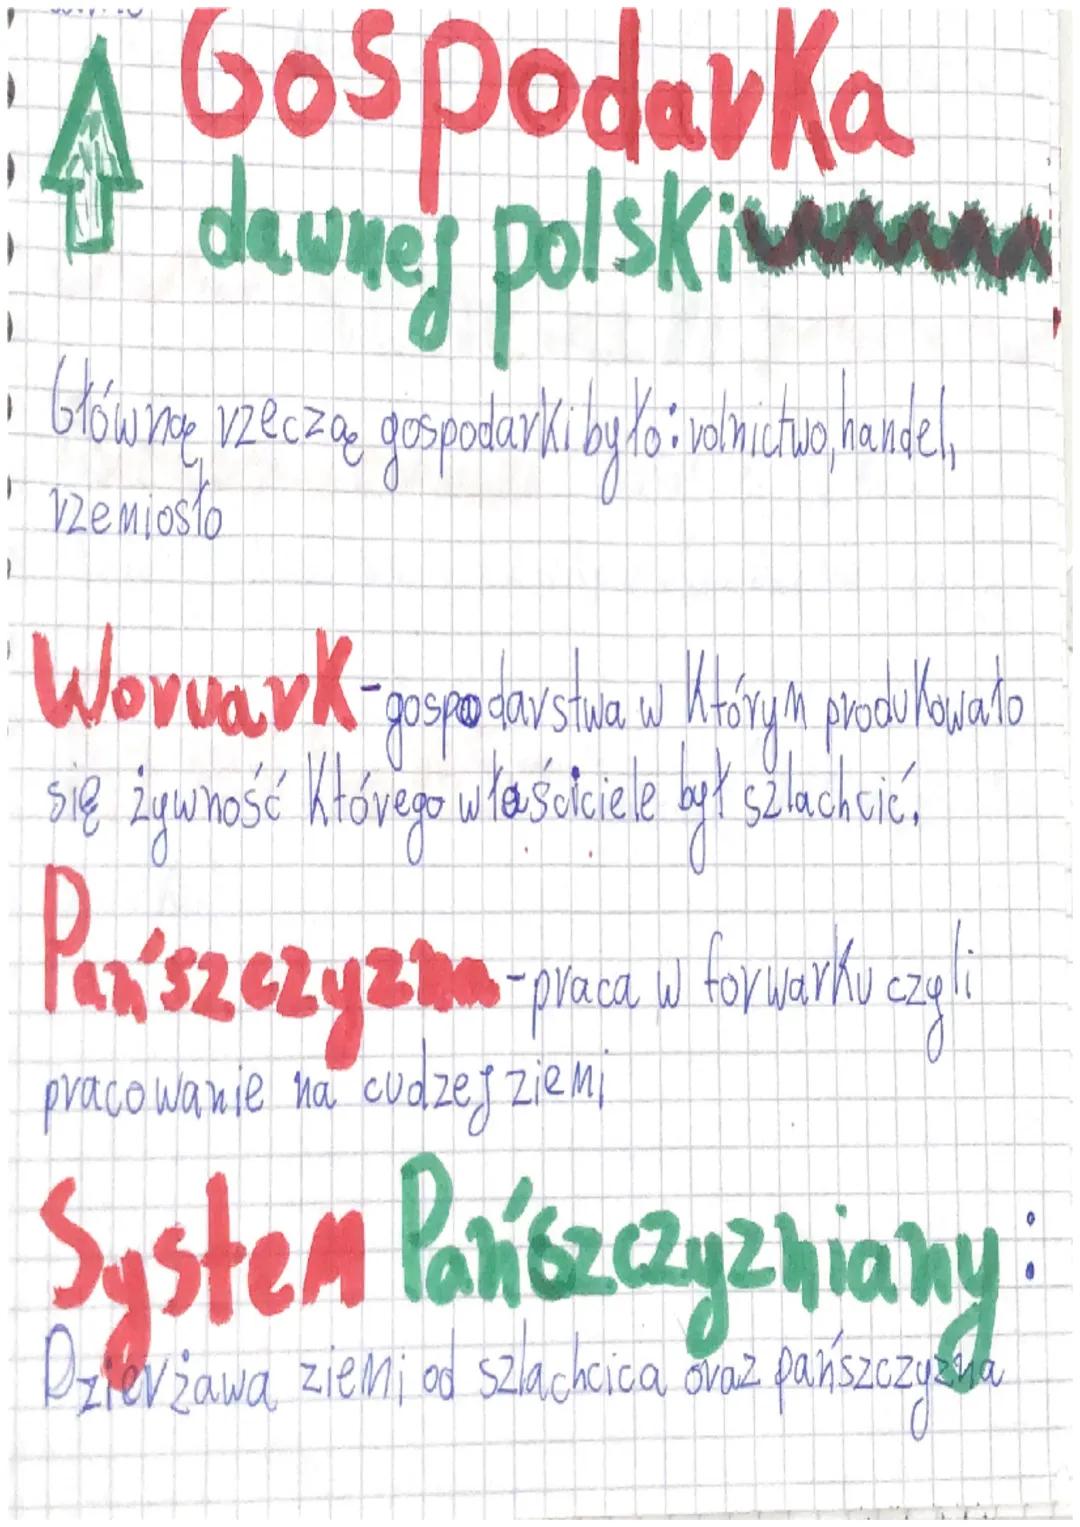 Gospodarka
dawnej polski
Główną rzeczą gospodarki było: rolnictwo, handel,
rzemiosło
Worwark - gospodarstwa w którym produkowało
się żywność którego właściciele był szlachcić.
Pańszczyzna - praca w forwarku czyli
pracowanie na cudzej ziemi
System Pańszczyzniany:
Dzierżawa ziemi od szlachcica oraz pańszczyzna